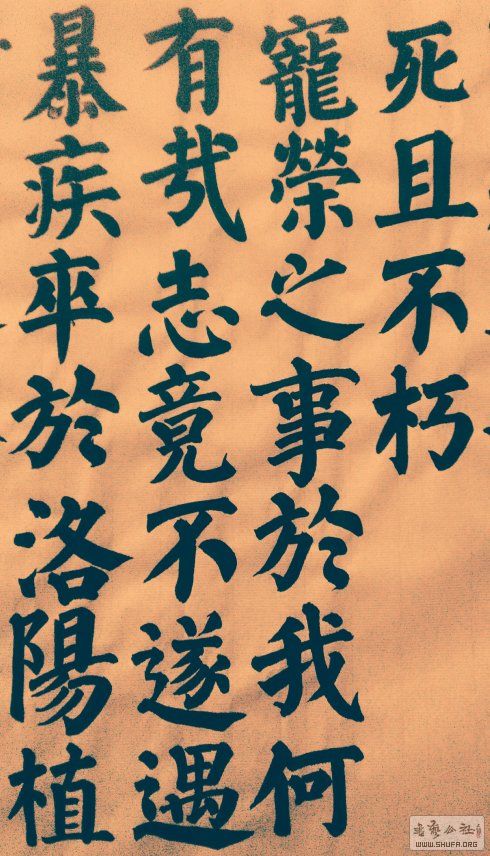 死且不朽
寵榮之事於我何
有哉志竟不遂遇
暴疾卒於洛陽植
WWW.SHUFA.ORG